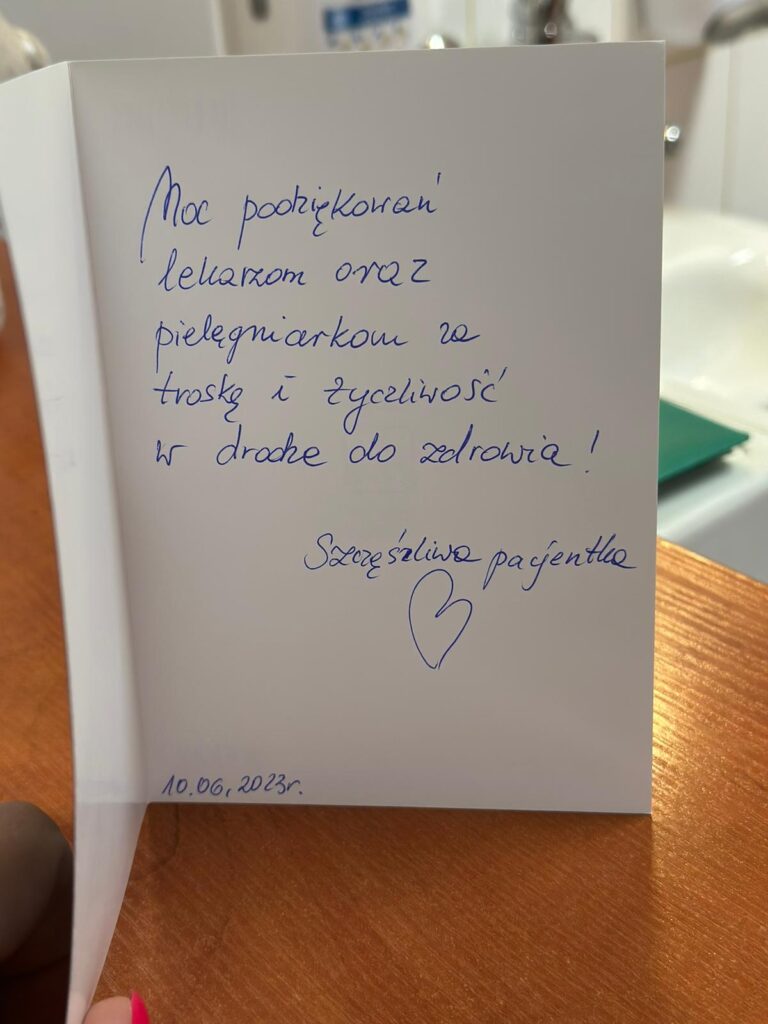 Moc podziękowań
lekarzom oraz
pielęgniarkom za
troskę i życzliwość
w drodze do zdrowia!
Szczęśliwa pacjentka
10.06.2023r.